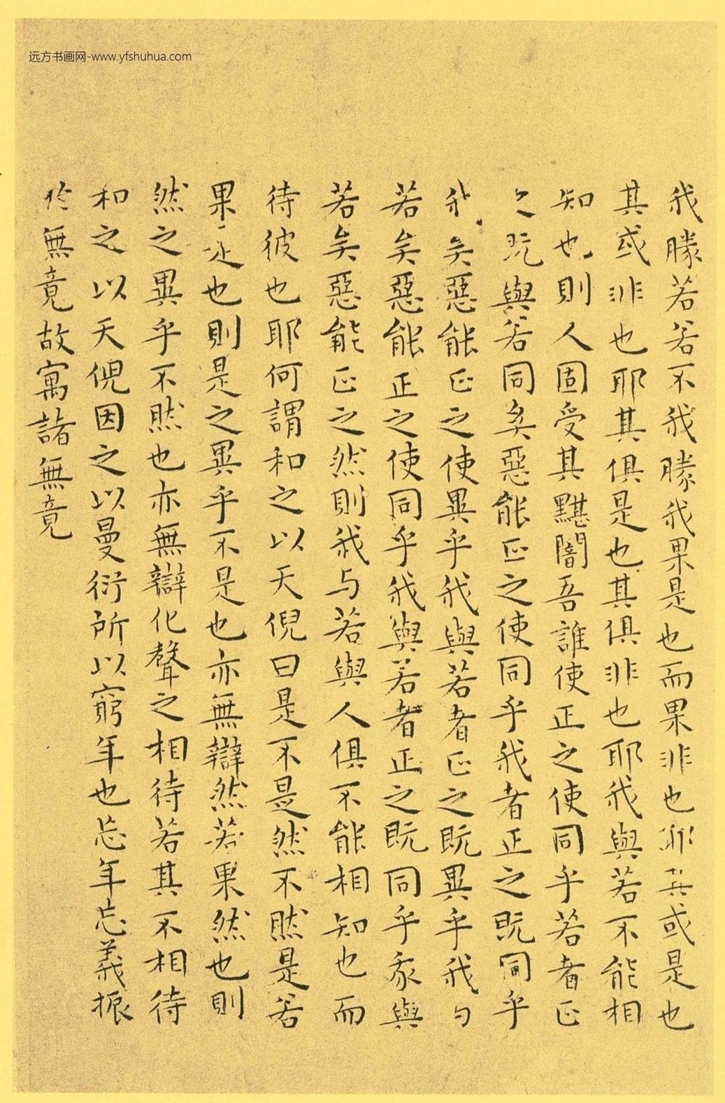 远方书画网-www.yfshuhua.com
我勝若若不我勝我果是也而果非也耶其或是也
其或非也耶其俱是也其俱非也耶我與若不能相
知也則人固受其黮闇吾誰使正之使同乎若者正
之既與若同矣惡能正之使同乎我者正之既同乎
我矣惡能正之使異乎我與若者正之既異乎我与
若矣惡能正之使同乎我與若者正之既同乎我與
若矣惡能正之然則我与若與人俱不能相知也而
待彼也耶何謂和之以天倪曰是不是然不然是若
果是也則是之異乎不是也亦無辯然若果然也則
然之異乎不然也亦無辯化聲之相待若其不相待
和之以天倪因之以曼衍所以窮年也忘年忘義振
於無竟故寓諸無竟